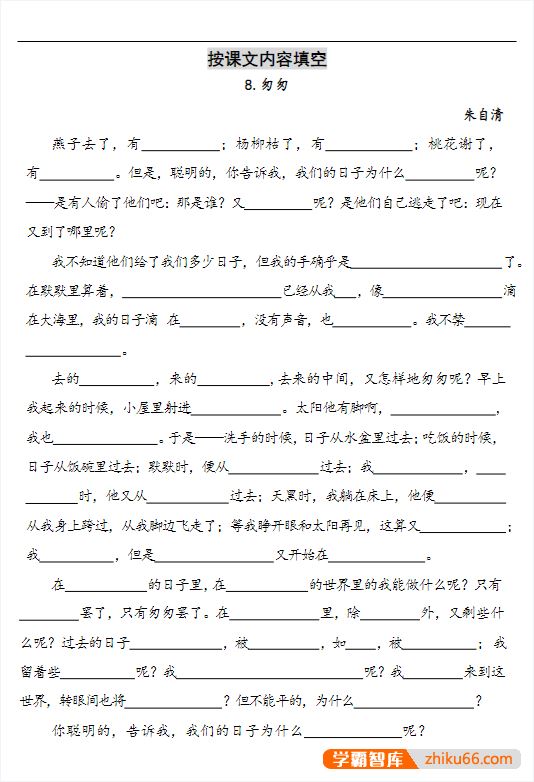 按课文内容填空
8.匆匆
朱自清
燕子去了，有__________；杨柳枯了，有__________；桃花谢了，
有__________。但是，聪明的，你告诉我，我们的日子为什么_________呢？
——是有人偷了他们吧：那是谁？又_________呢？是他们自己逃走了吧：现在
又到了哪里呢？
我不知道他们给了我们多少日子，但我的手确乎是____________________了。
在默默里算着，_____________________已经从我___，像________________滴
在大海里，我的日子滴 在________，没有声音，也__________。我不禁______
____________。
去的__________，来的_________,去来的中间，又怎样地匆匆呢？早上
我起来的时候，小屋里射进____________。太阳他有脚啊，______________，
我也______________。于是——洗手的时候，日子从水盆里过去；吃饭的时候，
日子从饭碗里过去；默默时，便从____________过去；我____________，____
_______时，他又从___________过去；天黑时，我躺在床上，他便_________
从我身上跨过，从我脚边飞走了；等我睁开眼和太阳再见，这算又___________；
我__________，但是_______________又开始在_____________。
在___________的日子里，在___________的世界里的我能做什么呢？只有
________罢了，只有匆匆罢了。在____________里，除________外，又剩些什
么呢？过去的日子____________，被_________，如____，被__________；我
留着些__________呢？我_________________________呢？我________来到这
世界，转眼间也将_____________？但不能平的，为什么________________？
你聪明的，告诉我，我们的日子为什么_____________呢？
学霸智库
zhiku66.com